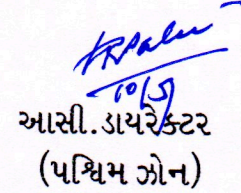 10/5
આસી.ડાયરેક્ટર
(પશ્ચિમ ઝોન)